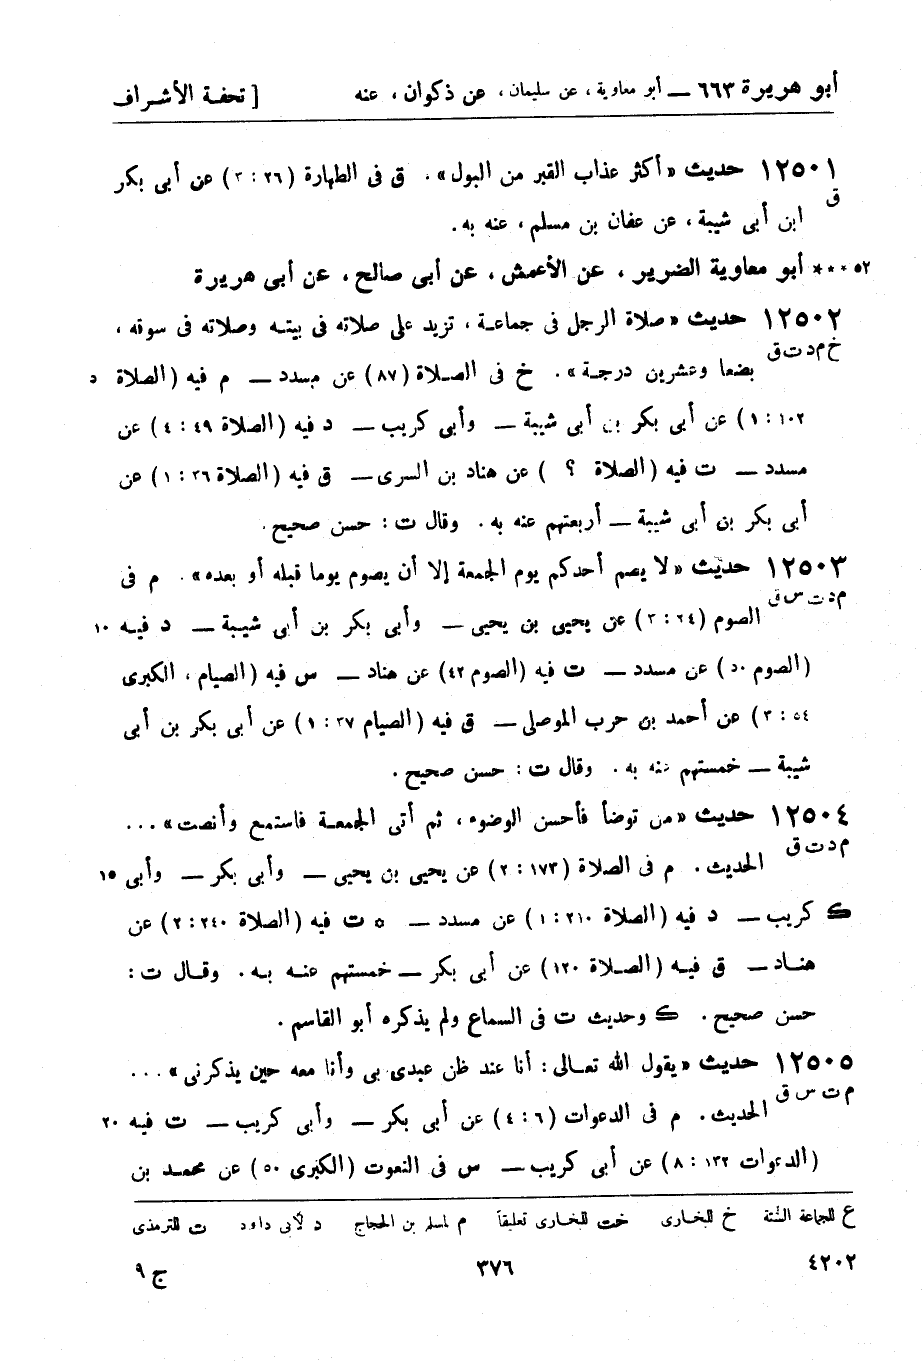 أبو هريرة ٦٦٣ — أبو معاوية، عن سليمان، عن ذكوان، عنه [ تحفة الأشراف
١٢٥٠١ حديث «أكثر عذاب القبر من البول». ق فى الطهارة (٢٦ : ٣) عن أبى بكر
ق
ابن أبى شيبة، عن عفان بن مسلم، عنه به.
٥٢ *** أبو معاوية الضرير، عن الأعمش، عن أبى صالح، عن أبى هريرة
١٢٥٠٢ حديث «صلاة الرجل فى جماعة، تزيد على صلاته فى بيته وصلاته فى سوقه،
خ م د ت ق
بضعا وعشرين درجة». خ فى الصلاة (٨٧) عن مسدد — م فيه (الصلاة د
١٠٢ : ١) عن أبى بكر بن أبى شيبة — وأبى كريب — د فيه (الصلاة ٤٩ : ٤) عن
مسدد — ت فيه (الصلاة ؟ ) عن هناد بن السرى — ق فيه (الصلاة ٣٦ : ١) عن
أبى بكر بن أبى شيبة — أربعتهم عنه به. وقال ت : حسن صحيح.
١٢٥٠٣ حديث «لا يصم أحدكم يوم الجمعة إلا أن يصوم يوما قبله أو بعده». م فى
م د ت س ق
الصوم (٢٤ : ٣) عن يحيى بن يحيى — وأبى بكر بن أبى شيبة — د فيه ١٠
(الصوم ٥٠) عن مسدد — ت فيه (الصوم ٤٢) عن هناد — س فيه (الصيام، الكبرى
٥٤ : ٣) عن أحمد بن حرب الموصلى — ق فيه (الصيام ٣٧ : ١) عن أبى بكر بن أبى
شيبة — خمستهم عنه به. وقال ت : حسن صحيح.
١٢٥٠٤ حديث «من توضأ فأحسن الوضوء، ثم أتى الجمعة فاستمع وأنصت» ...
م د ت ق
الحديث. م فى الصلاة (١٧٣ : ٢) عن يحيى بن يحيى — وأبى بكر — وأبى ١٥
ك كريب — د فيه (الصلاة ٢١٠ : ١) عن مسدد — ٥ ت فيه (الصلاة ٢٤٠ : ٢) عن
هناد — ق فيه (الصلاة ١٢٠) عن أبى بكر — خمستهم عنه به. وقال ت :
حسن صحيح. ك وحديث ت فى السماع ولم يذكره أبو القاسم.
١٢٥٠٥ حديث «يقول الله تعالى : أنا عند ظن عبدى بى وأنا معه حين يذكرنى» ...
م ت س ق
الحديث. م فى الدعوات (٦ : ٤) عن أبى بكر — وأبى كريب — ت فيه ٢٠
(الدعوات ١٣٢ : ٨) عن أبى كريب — س فى النعوت (الكبرى ٥٠) عن محمد بن
ع للجماعة الستة خ للبخارى خت للبخارى تعليقا م لمسلم بن الحجاج د لأبى داود ت للترمذى
٤٢٠٢ ٣٧٦ ج ٩